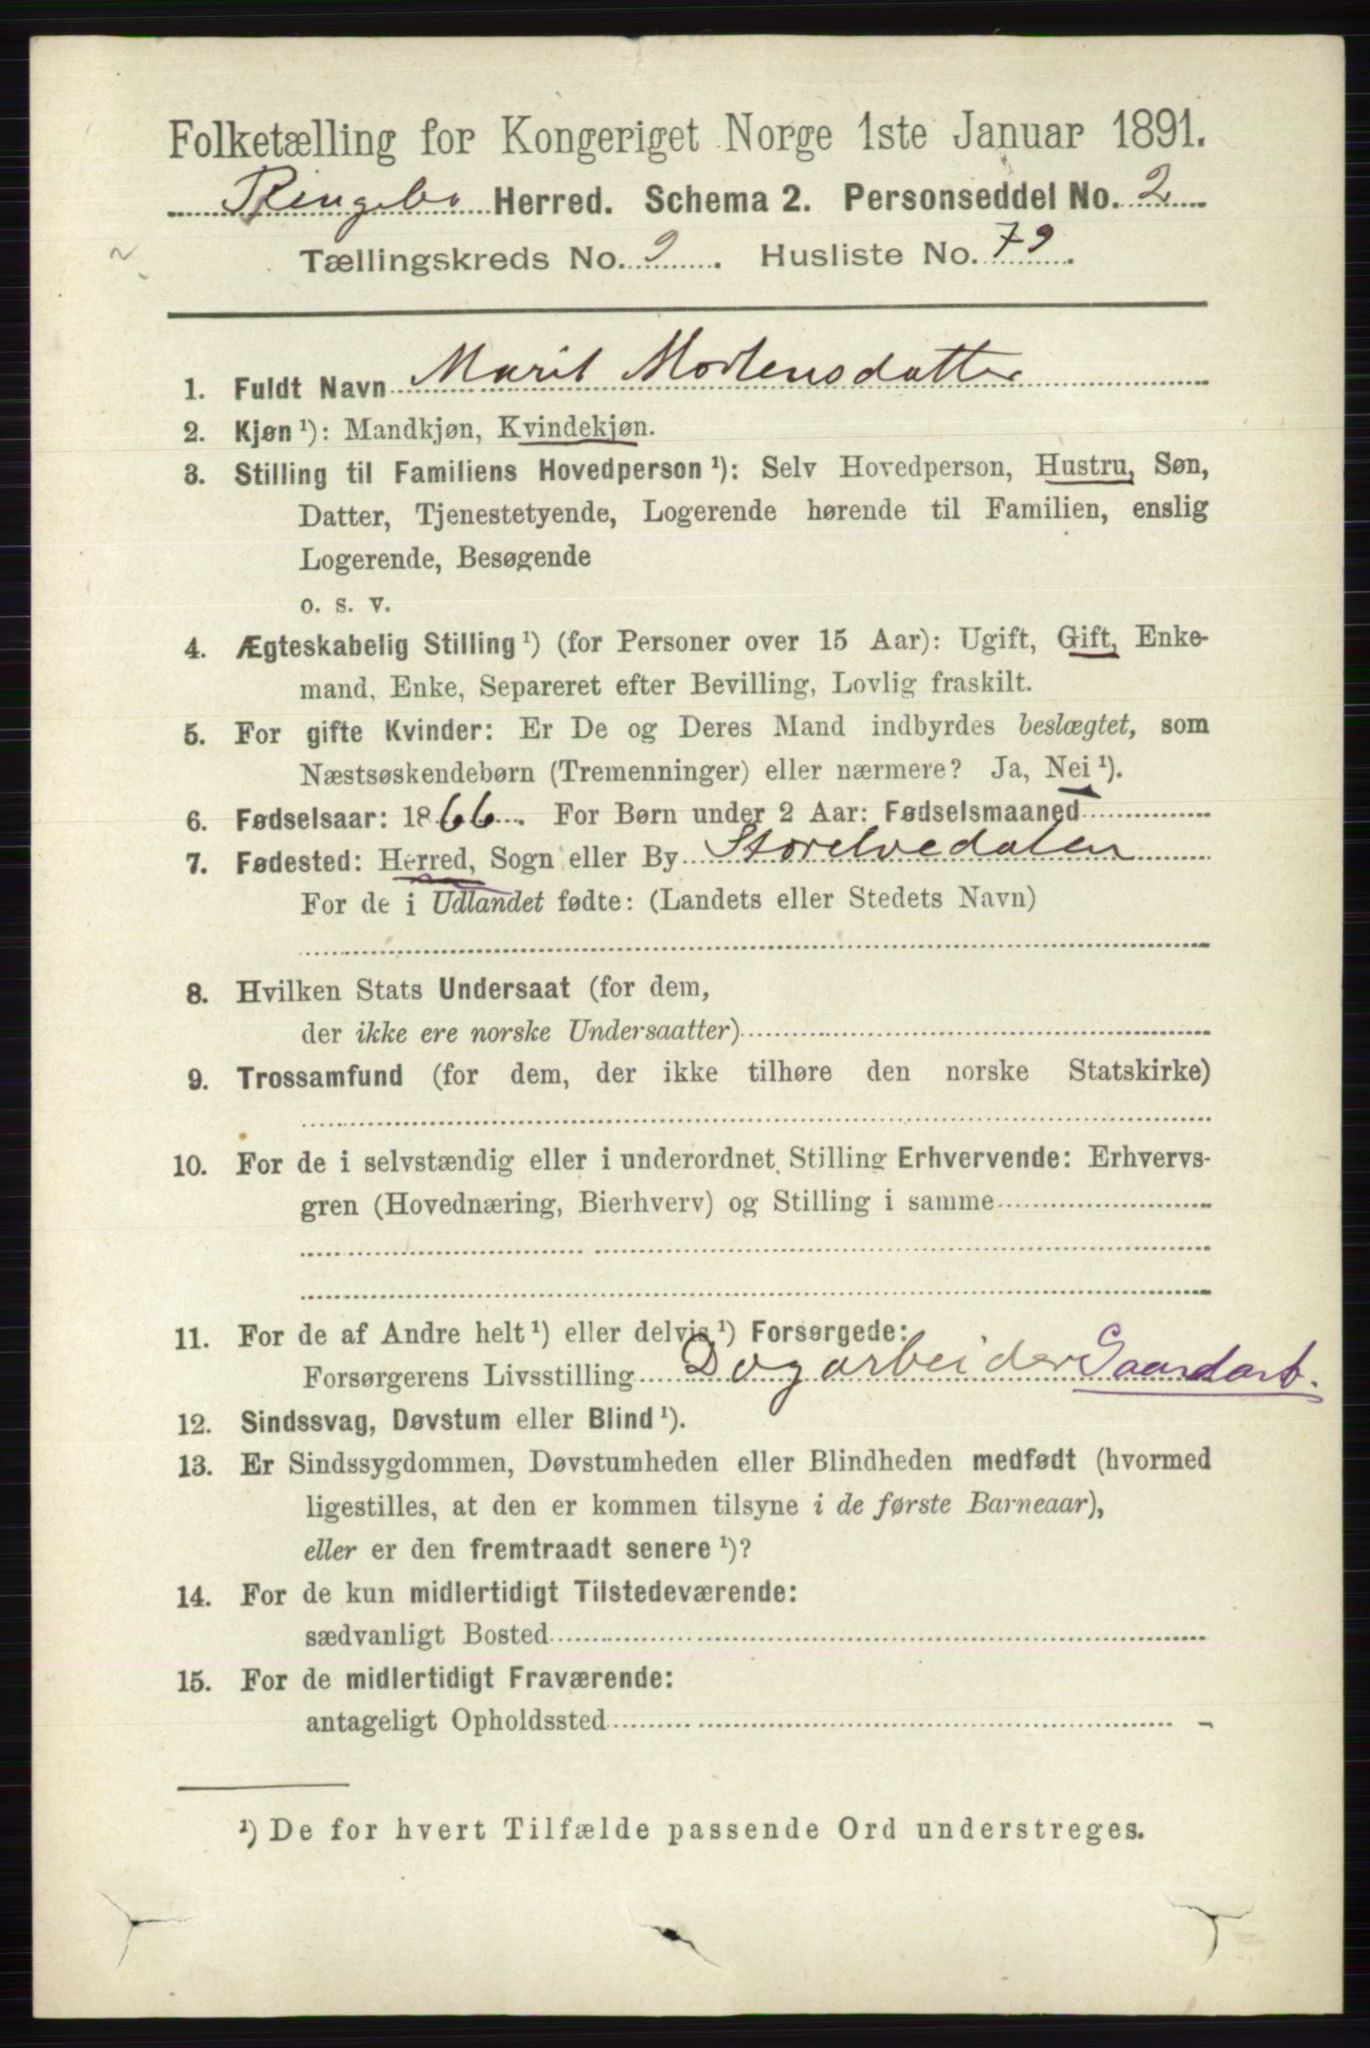 Folketælling for Kongeriget Norge 1ste Januar 1891.
Ringebo Herred. Schema 2. Personseddel No. 2
Tællingskreds No. 9. Husliste No. 79.
1. Fuldt Navn Marit Mortensdatter
2. Kjøn ¹): Mandkjøn, Kvindekjøn.
3. Stilling til Familiens Hovedperson ¹): Selv Hovedperson, Hustru, Søn,
Datter, Tjenestetyende, Logerende hørende til Familien, enslig
Logerende, Besøgende
o. s. v.
4. Ægteskabelig Stilling ¹) (for Personer over 15 Aar): Ugift, Gift, Enke-
mand, Enke, Separeret efter Bevilling, Lovlig fraskilt.
5. For gifte Kvinder: Er De og Deres Mand indbyrdes beslægtet, som
Næstsøskendebørn (Tremenninger) eller nærmere? Ja, Nei ¹).
6. Fødselsaar: 1866. For Børn under 2 Aar: Fødselsmaaned
7. Fødested: Herred, Sogn eller By Storelvedalen
For de i Udlandet fødte: (Landets eller Stedets Navn)
8. Hvilken Stats Undersaat (for dem,
der ikke ere norske Undersaatter)
9. Trossamfund (for dem, der ikke tilhøre den norske Statskirke)
10. For de i selvstændig eller i underordnet Stilling Erhvervende: Erhvervs-
gren (Hovednæring, Bierhverv) og Stilling i samme
11. For de af Andre helt ¹) eller delvis ¹) Forsørgede:
Forsørgerens Livsstilling Dagarbeider Gaardarb.
12. Sindssvag, Døvstum eller Blind ¹).
13. Er Sindssygdommen, Døvstumheden eller Blindheden medfødt (hvormed
ligestilles, at den er kommen tilsyne i de første Barneaar),
eller er den fremtraadt senere ¹)?
14. For de kun midlertidigt Tilstedeværende:
sædvanligt Bosted
15. For de midlertidigt Fraværende:
antageligt Opholdssted
¹) De for hvert Tilfælde passende Ord understreges.